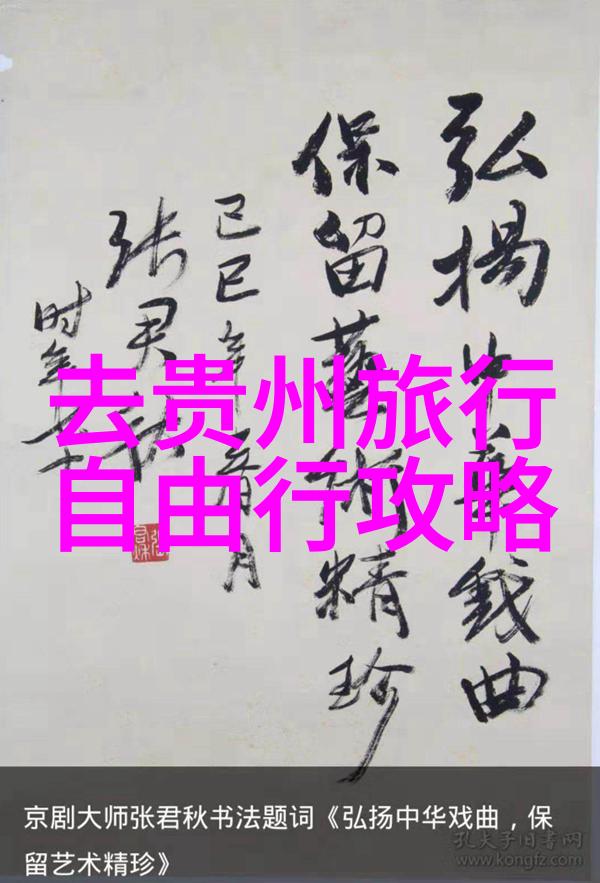 弘揚中華戲曲
保留藝術精珍
己巳年春月
张君秋
时年七十
去贵州旅行
自由行攻略
京剧大师张君秋书法题词《弘扬中华戏曲，保
留艺术精珍》
孔夫子旧书网
www.kongfz.com